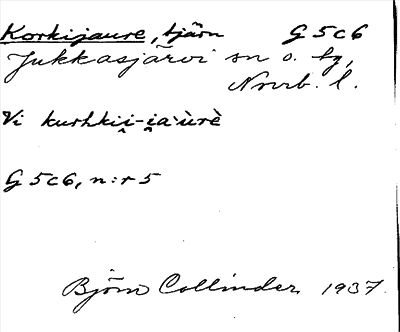 Korkijaure, tjärn G 5 c 6
Jukkasjärvi sn o. tg,
Norrb. l.
Vi kurhkii̯-i̯a·ùrè
G 5 c 6, n:r 5
Björn Collinder 1937.